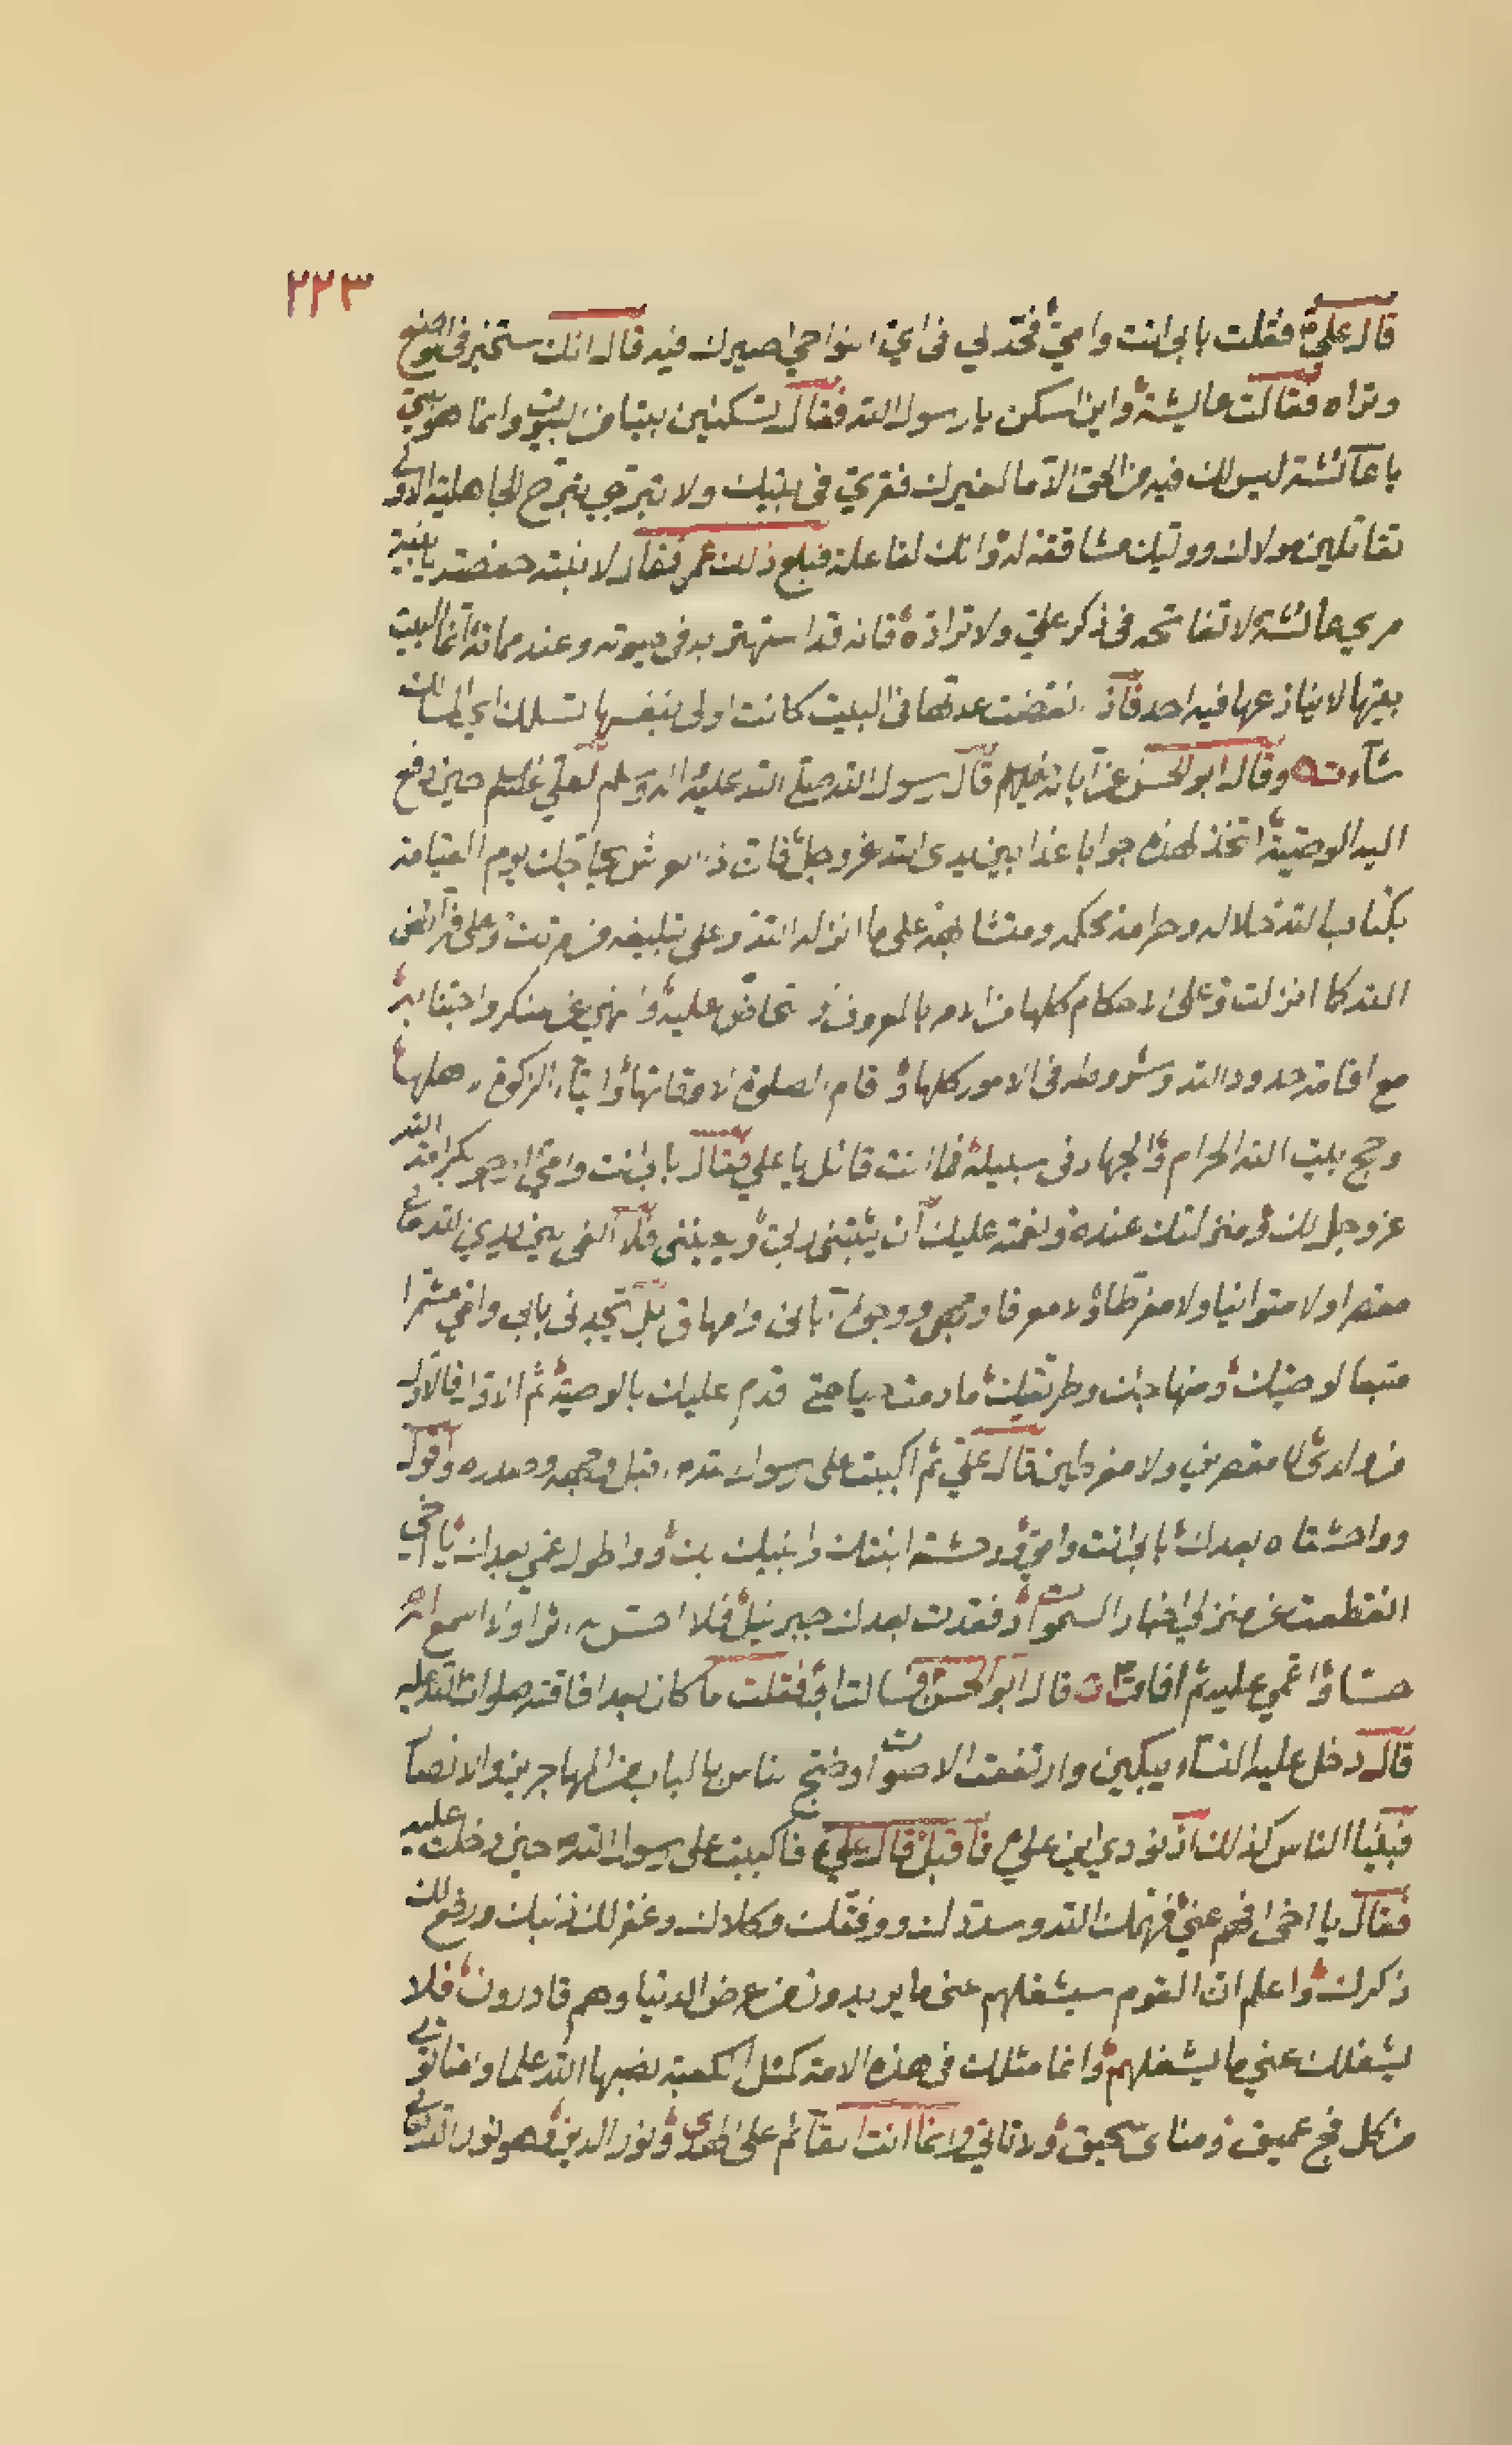 ٢٢٣
قال علي ع فقلت بابي انت وامي فحد لي في اي النواحي اصيرك فيه قال انك ستخبر في الموضع
وتراه فقالت عايشة واين اسكن يا رسول الله فقال تسكنين بيتا من البيوت وانما هو بيتي
يا عائشة ليس لك فيه من الحق الا ما لغيرك فقري في بيتك ولا تبرجي تبرج الجاهلية الاولى
تقاتلين مولاك ووليك مشاققة له وانك لفاعلة فبلغ ذلك عمر فقال لابنته حفصة يا بنية
مري عائشة لا تفاتحه في ذكر علي ولا تراده فانه قد استهتر به في حيوته وعند مماته انما البيت
بيتها لا ينازعها فيه احد فاذا نقضت عدتها في البيت كانت اولى بنفسها تسلك اي المسالك
شآءت وقال ابو الحسن عن آبائه عليهم قال رسول الله صلى الله عليه وآله وسلم لعلي عليلم حين دفع
اليه الوصية اتخذ لهذه جوابا غدا بين يدى الله عز وجل فان ذا العرش يحاجك يوم القيامة
بكتاب الله حلاله وحرامه محكمه ومتشابهه على ما انزله الله وعلى تبليغه من امرتك وعلى فرائض
الله كما انزلت وعلى الاحكام كلها من الامر بالمعروف و تحاض عليه و نهي عن منكر واجتنابه
مع اقامة حدود الله وشروطه في الامور كلها و قام الصلوة لاوقاتها وايتآء الزكوة اهلها
وحج بيت الله الحرام والجهاد في سبيله فما انت قائل يا علي فقال بابي انت وامي ارجو بكرامة الله
عز وجل لك ومنزلتك عنده ونعمته عليك ان يثبتني ربي ويعينني فلا القى بين يدي الله تعالى
مقصرا ولا متوانيا ولا مفرطا ولا معرفا وجهي ووجوه آبائي وامهاتي بل تجدني بابي وامي مشمرا
متبعا لوصيتك ومنهاجك وطريقتك ما دمت حيا حتى قدم عليك بالوصية ثم الاول فالاول
من ولدي لا مقصرين ولا مفرطين قال علي ثم اكببت على رسول الله ص قبل وجهه وصدره واقول
وواحشتاه بعدك بابي انت وامي ووحشة ابنتك وابنيك بك و واطول غمي بعدك يا اخي
انقطعت عن منزلي اخبار السموات و فقدت بعدك جبرئيل فلا احس اثرا ولا اسمع
حسا واغمي عليه ثم افاق قال ابو الحسن فسالت ابي فقلت ما كان بعد افاقته صلوات الله عليه
قال دخل عليه النسآء يبكين وارتفعت الاصوات وضج الناس بالباب من المهاجرين والانصا
فبينا الناس كذلك اذ نودي اين علي ع فاقبل قال علي ع فاكببت على رسول الله ص حين دخلت عليه
فقال يا اخي افهم عني فهمك الله وسددك ووفقك وكلاك وغفر لك ذنبك ورفع لك
ذكرك واعلم ان القوم سيشغلهم عني ما يريدون من عرض الدنيا وهم قادرون فلا
يشغلك عني ما يشغلهم وانما مثلك في هذه الامة كمثل الكعبة نصبها الله علما وانما تؤتى
من كل فج عميق ومناى سحيق ولا تاتي وانما انت القآئم على الهدى ونور الدين وهو نور الله تعالى